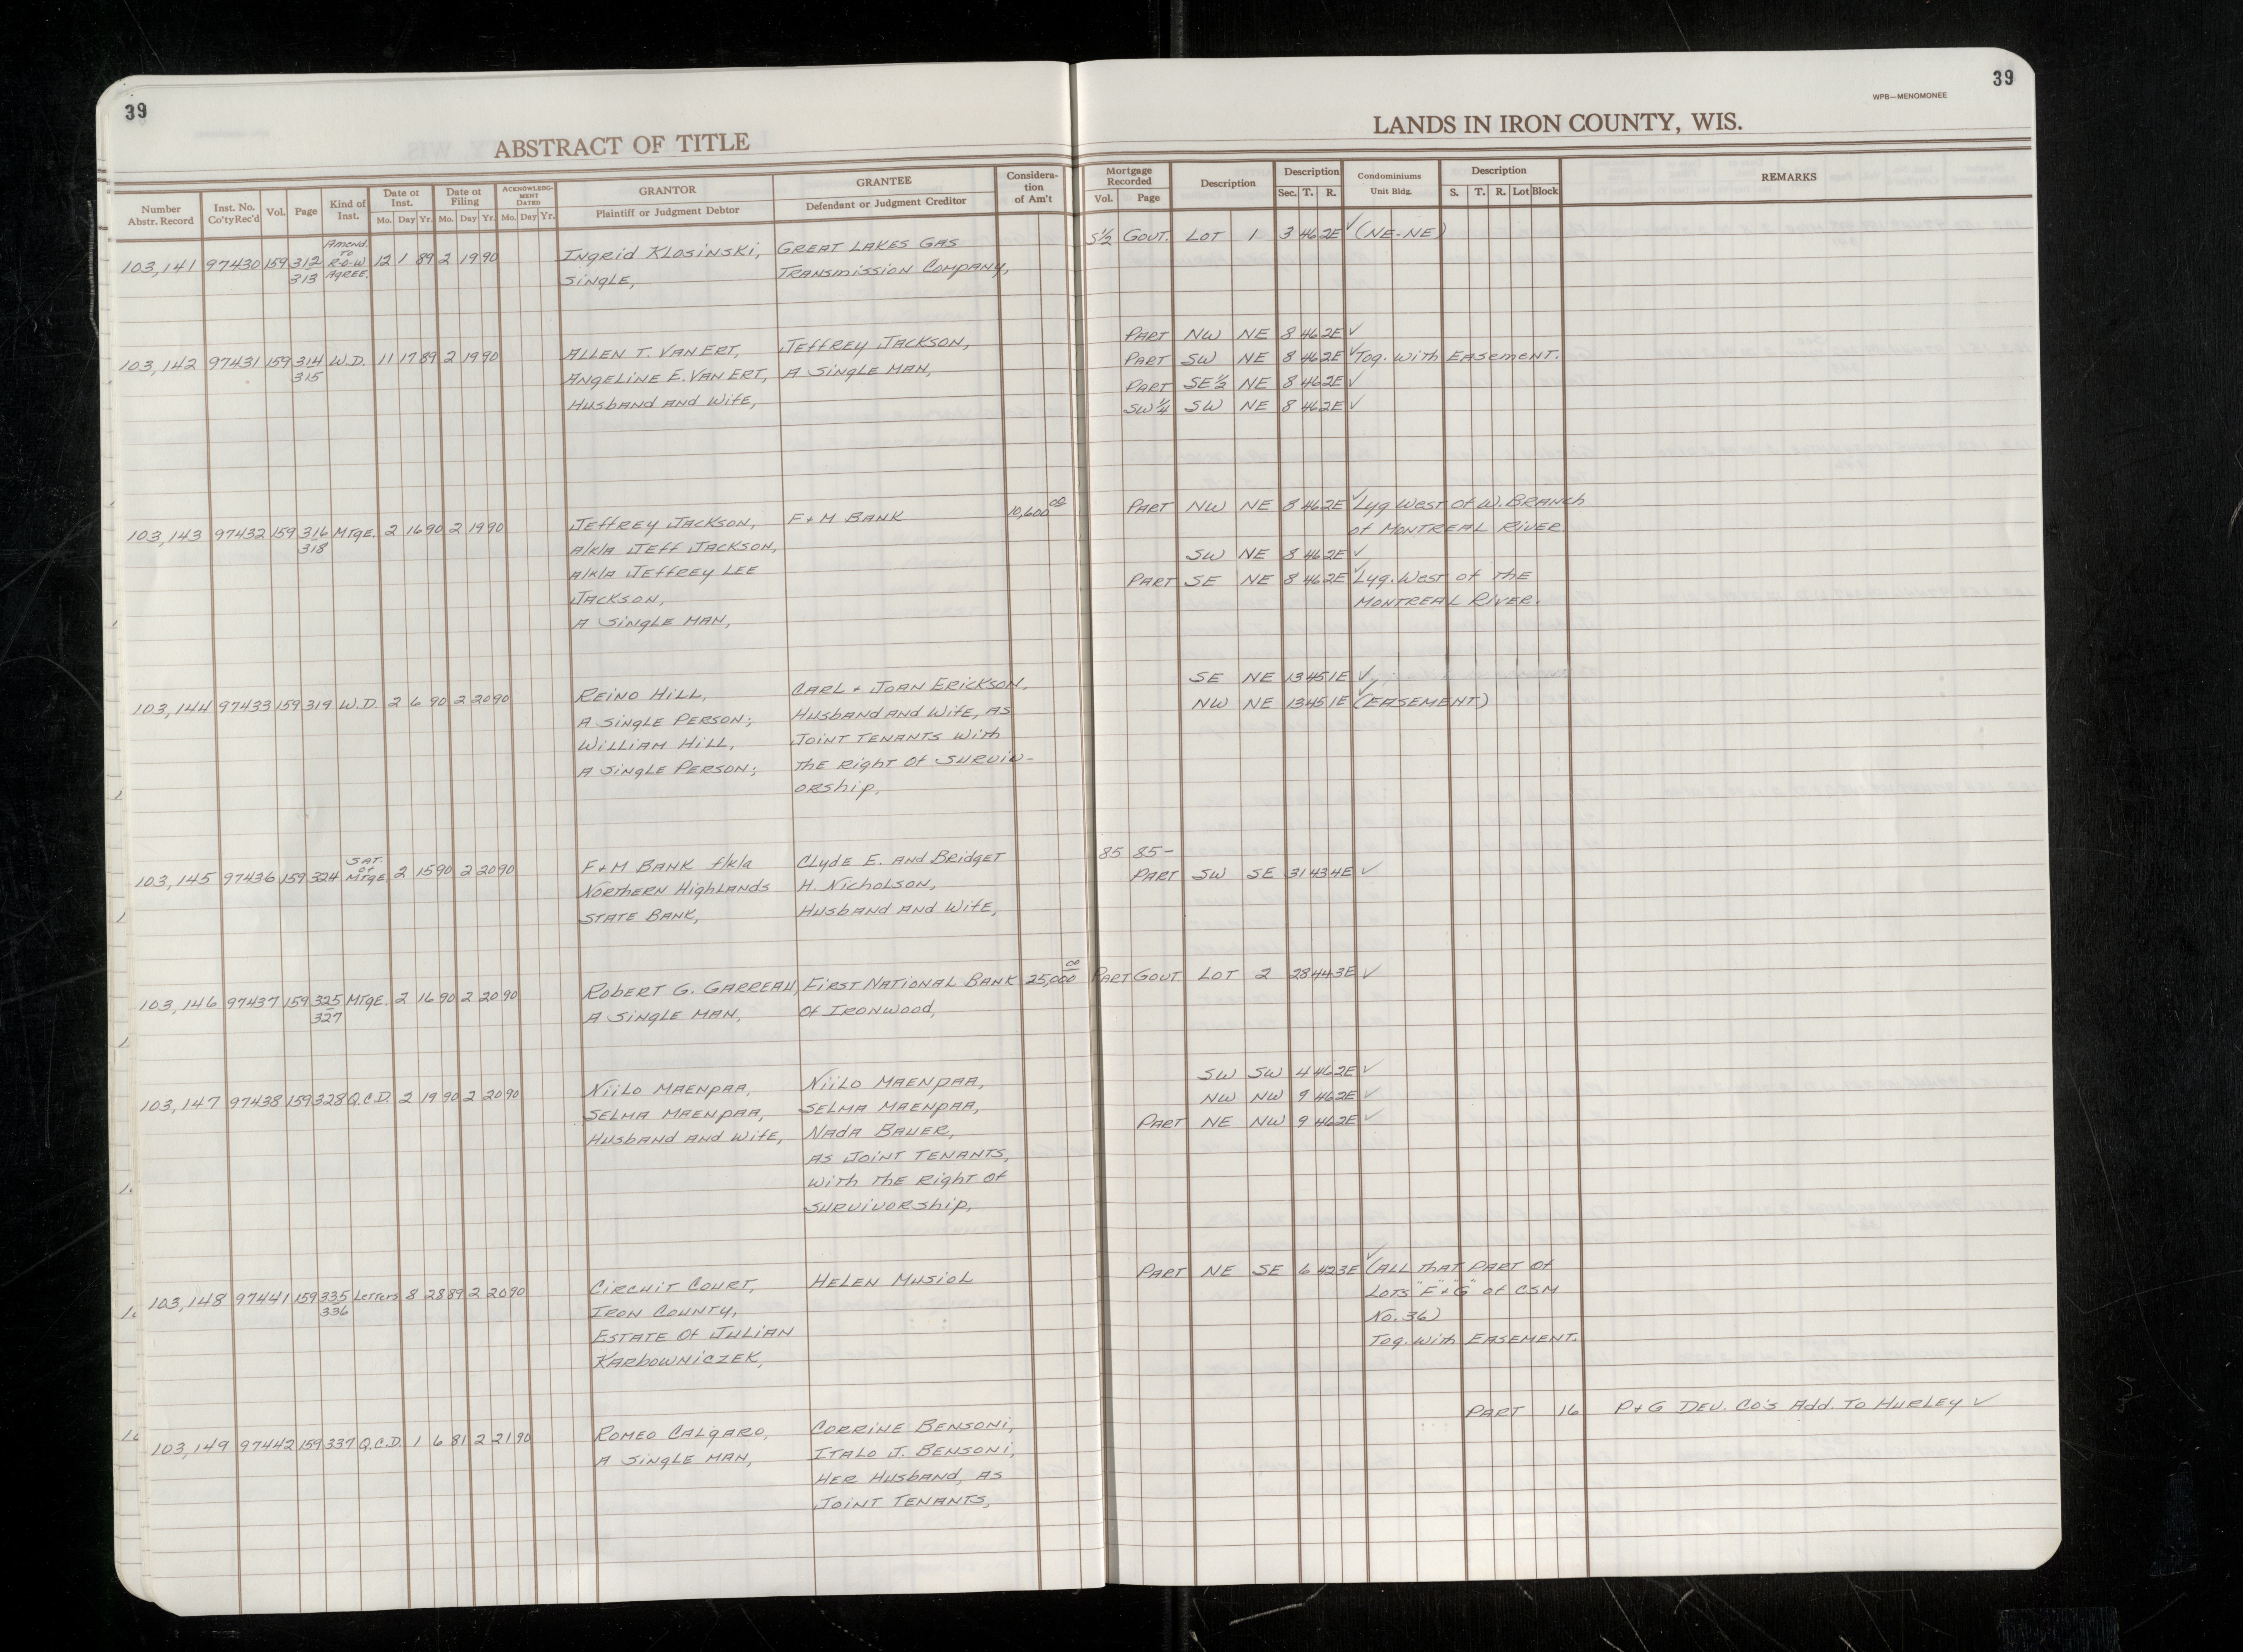 39
ABSTRACT OF TITLE
Number Abstr. Record
Inst. No. Co'ty Rec'd
Vol.
Page
Kind of Inst.
Date of Inst.
Mo. Day Yr.
Date of Filing
Mo. Day Yr.
ACKNOWLEDG-MENT DATED
Mo. Day Yr.
GRANTOR
Plaintiff or Judgment Debtor
GRANTEE
Defendant or Judgment Creditor
Considera-tion of Am't
39
WPB—MENOMONEE
LANDS IN IRON COUNTY, WIS.
Mortgage Recorded
Vol. Page
Description
Description
Sec. T. R.
Condominiums
Unit Bldg.
Description
S. T. R. Lot Block
REMARKS
103,141 97430 159 312 313 Amend. To R-O-W Agree. 12 1 89 2 19 90
Ingrid Klosinski,
Single,
Great Lakes Gas
Transmission Company,
S½ Govt. Lot 1 3 46 2E ✓ (NE-NE)
103,142 97431 159 314 315 W.D. 11 17 89 2 19 90
Allen T. Van Ert,
Angeline E. Van Ert,
Husband and Wife,
Jeffrey Jackson,
A Single Man,
Part NW NE 8 46 2E ✓
Part SW NE 8 46 2E ✓ Tog. with Easement.
Part SE½ NE 8 46 2E ✓
SW¼ SW NE 8 46 2E ✓
103,143 97432 159 316 318 Mtge. 2 16 90 2 19 90
Jeffrey Jackson,
a/k/a Jeff Jackson,
a/k/a Jeffrey Lee
Jackson,
A Single Man,
F+M Bank
10,600 00
Part NW NE 8 46 2E ✓ Lyg West of W. Branch
of Montreal River
SW NE 8 46 2E ✓
Part SE NE 8 46 2E ✓ Lyg. West of the
Montreal River.
103,144 97433 159 319 W.D. 2 6 90 2 20 90
Reino Hill,
A Single Person;
William Hill,
A Single Person;
Carl + Joan Erickson,
Husband and Wife, as
Joint Tenants with
the Right of Surviv-
orship,
SE NE 13 45 1E ✓
NW NE 13 45 1E ✓ (Easement)
103,145 97436 159 324 Sat. of Mtge. 2 15 90 2 20 90
F+M Bank f/k/a
Northern Highlands
State Bank,
Clyde E. and Bridget
H. Nicholson,
Husband and Wife,
85 85-
Part SW SE 31 43 4E ✓
103,146 97437 159 325 327 Mtge. 2 16 90 2 20 90
Robert G. Garreau,
A Single Man,
First National Bank
of Ironwood,
25,000 00
Part Govt. Lot 2 28 44 3E ✓
103,147 97438 159 328 Q.C.D. 2 19 90 2 20 90
Niilo Maenpaa,
Selma Maenpaa,
Husband and Wife,
Niilo Maenpaa,
Selma Maenpaa,
Nada Bauer,
as Joint Tenants,
with the Right of
Survivorship,
SW SW 4 46 2E ✓
NW NW 9 46 2E ✓
Part NE NW 9 46 2E ✓
103,148 97441 159 335 336 Letters 8 28 89 2 20 90
Circuit Court,
Iron County,
Estate of Julian
Karbowniczek,
Helen Musiol
Part NE SE 6 42 3E ✓ (All that part of
Lots "F"+"G" of CSM
No. 36)
Tog. with Easement.
103,149 97442 159 337 Q.C.D. 1 6 81 2 21 90
Romeo Calgaro,
A Single Man,
Corrine Bensoni,
Italo J. Bensoni,
Her Husband, as
Joint Tenants,
Part 16 P+G Dev. Co's Add. To Hurley ✓